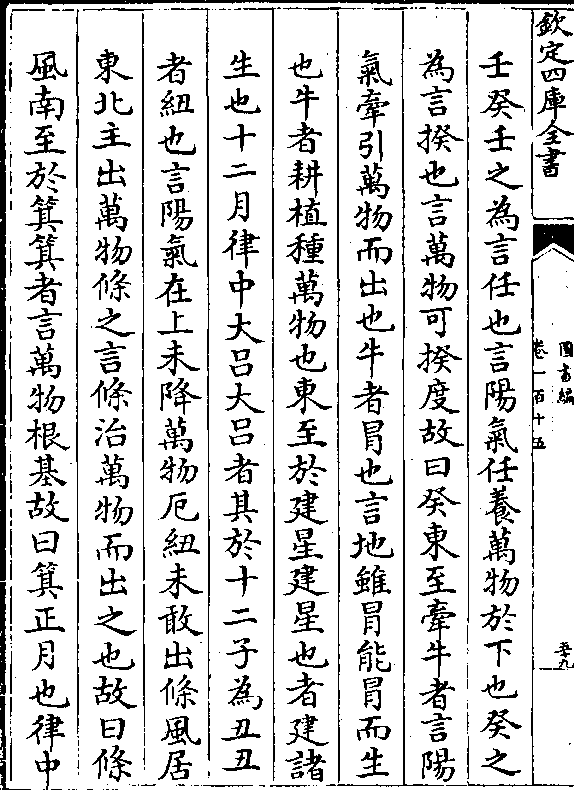 欽定四庫全書
圖書編
卷一百十五
壬癸壬之為言任也言陽氣任養萬物於下也癸之
為言揆也言萬物可揆度故曰癸東至牽牛者言陽
氣牽引萬物而出也牛者冒也言地雖冒能冒而生
也牛者耕植種萬物也東至於建星建星也者建諸
生也十二月律中大吕大吕者其於十二子為丑丑
者紐也言陽氣在上未降萬物厄紐未敢出條風居
東北主出萬物條之言條治萬物而出之也故曰條
風南至於箕箕者言萬物根基故曰箕正月也律中